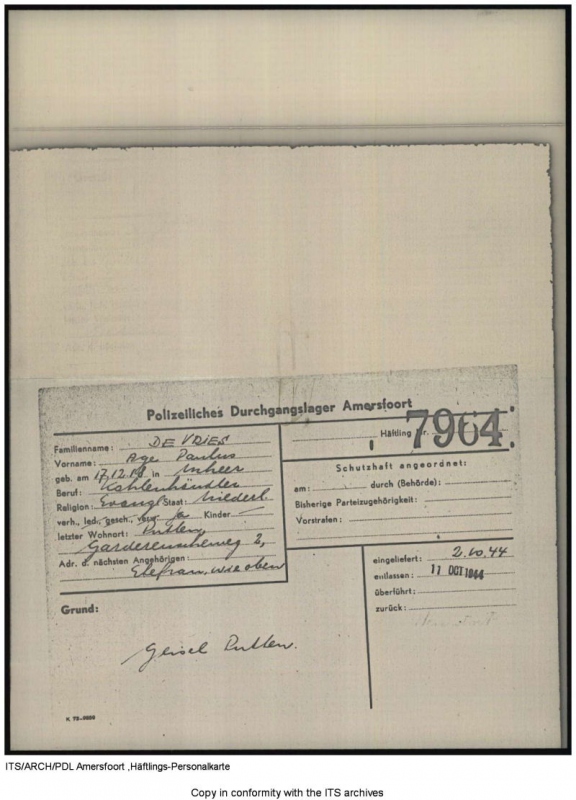 Polizeiliches Durchgangslager Amersfoort
Häftling Nr. 7964
Familienname: DE VRIES
Vorname: Age Paulus
geb. am 17.12.14 in
Beruf: Kohlenhändler
Religion: Evang. Staat: Niederl.
verh., led., gesch., verw. ja Kinder —
letzter Wohnort: Putten,
2,
Adr. d. nächsten Angehörigen:
Ehefrau, wie oben
Schutzhaft angeordnet:
am: durch (Behörde):
Bisherige Parteizugehörigkeit:
Vorstrafen:
eingeliefert: 2.10.44
entlassen: 11 OCT 1944
überführt:
zurück:
Grund:
Geisel Putten.
ITS/ARCH/PDL Amersfoort ,Häftlings-Personalkarte
Copy in conformity with the ITS archives